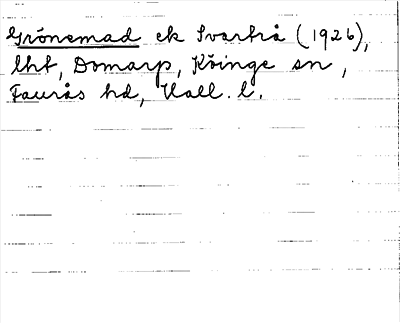 Grönemad ek Svartrå (1926),
lht, Domarp, Köinge sn,
Faurås hd, Hall. l.